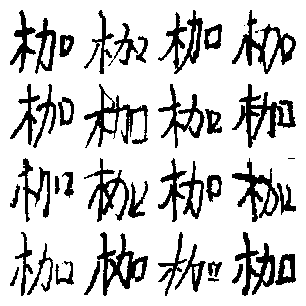 枷枷枷枷
枷枷枷枷
枷枷枷枷
枷枷枷枷